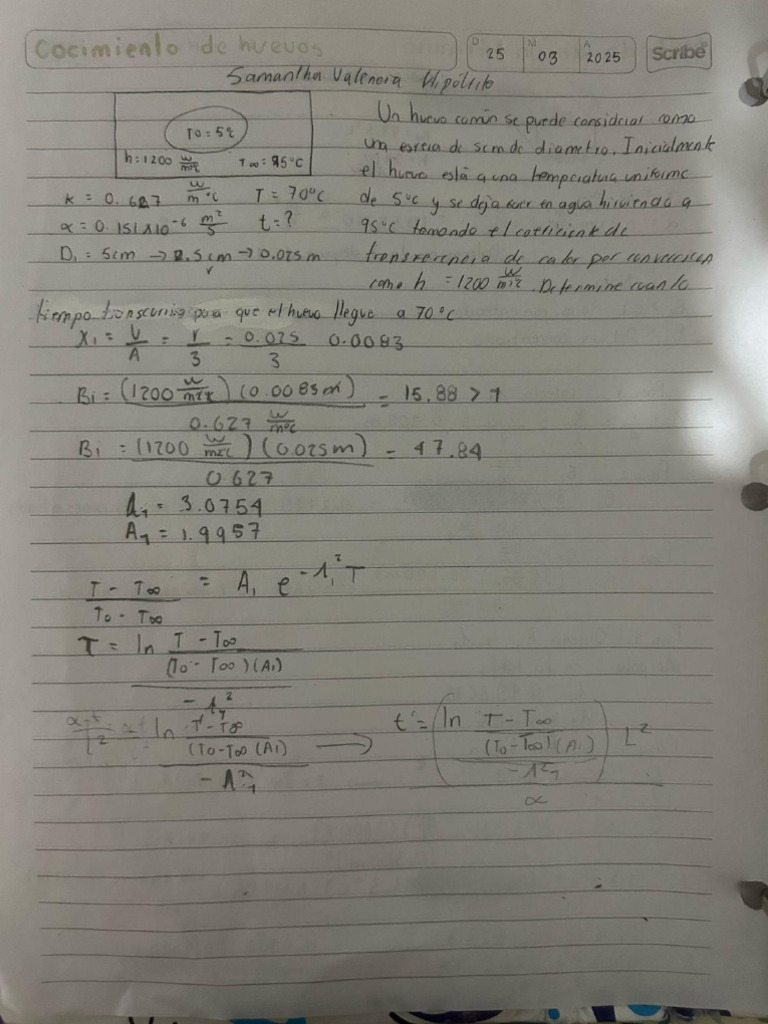 Cocimiento de huevos
D 25 M 03 A 2025 Scribe
Samantha Valencia Hipólito
T0 = 5°c
h = 1200 w/m²°c T∞ = 95°C
K = 0.627 w/m°c T = 70°C
α = 0.151x10⁻⁶ m²/s t = ?
D1 = 5cm → 2.5cm → 0.025m
r
Un huevo común se puede considerar como
una esfera de 5cm de diametro. Inicialmente
el huevo está a una temperatura uniforme
de 5°C y se deja caer en agua hirviendo a
95°c tomando el coeficiente de
transferencia de calor por convección
como h = 1200 w/m²°c. Determine cuanto
tiempo transcurrira para que el huevo llegue a 70°c
X1 = V/A = r/3 = 0.025/3 0.0083
Bi = (1200 w/m²°c)(0.0083m)/0.627 w/m°c = 15.88 > 1
Bi = (1200 w/m²c)(0.025m)/0.627 = 47.84
λ1 = 3.0754
A1 = 1.9957
T - T∞/T0 - T∞ = A1 e^-λ1² τ
τ = ln T - T∞/(T0 - T∞)(A1) / -λ1²
α t/L² = ln T - T∞/(T0 - T∞(A1) / -λ²1 → t = (ln T - T∞/(T0 - T∞)(A1) / -λ²1) L² / α